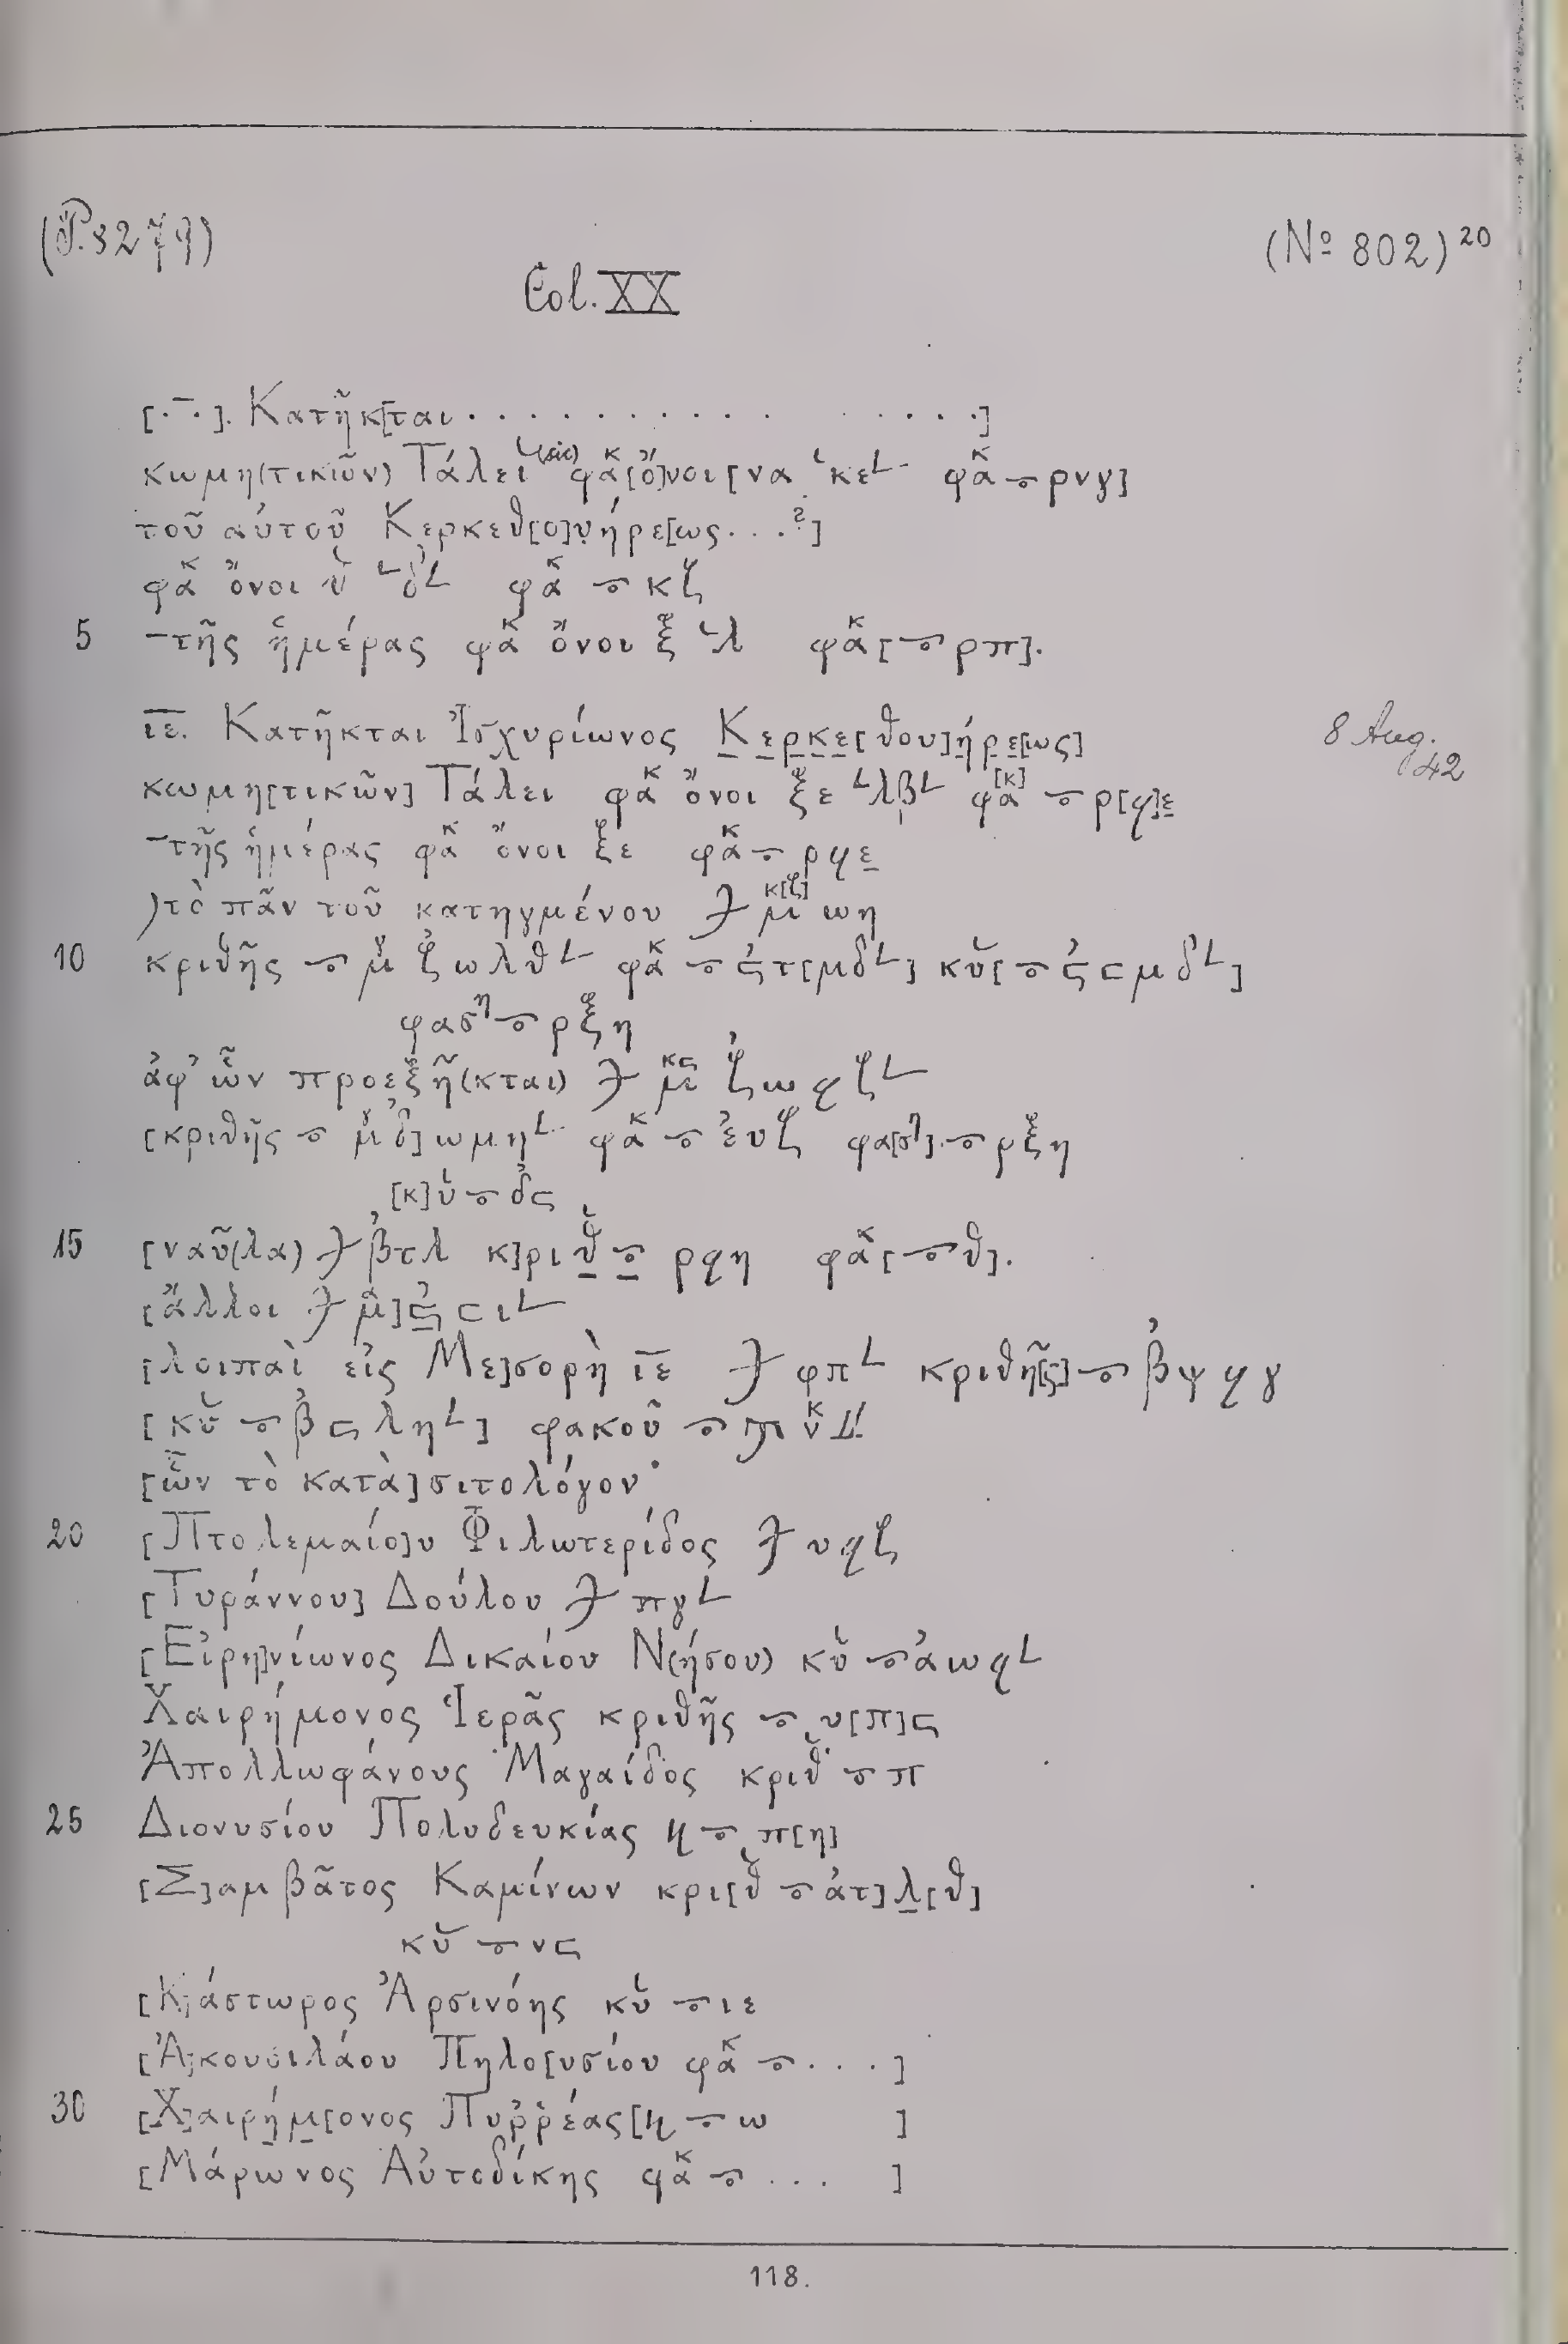 (P. 8279)
(№ 802) 20
Col. XX
[.‾.]. Κατῆκ[ται . . . . . . . . . . . . . . .]
κωμη(τικῶν) Τάλει (εἰς) φακ [ὄ]νοι [να └κε└ φακ ⲟ̄ ρνγ]
τοῦ αὐτοῦ Κερκεθ[ο]υ̣ήρε[ως . . . ?]
φακ ὄνοι └δ└ φακ ⲟ̄ κζ
5 —τῆς ἡμέρας φακ ὄνοι ξ └λ φακ [ⲟ̄ ρπ].
ιε. Κατῆκται Ἰσχυρίωνος Κερκε[θου]ήρε[ως]
8 Aug. 42
κωμη[τικῶν] Τάλει φακ ὄνοι ξε └λβ└ φα[κ] ⲟ̄ ρ[ϙ]ε
—τῆς ἡμέρας φακ ὄνοι ξε φακ ⲟ̄ ρϙε
)τὸ πᾶν τοῦ κατηγμένου μ κ[ζ] ωη
10 κριθῆς ⲟ̄ μ ζωλθ└ φακ ⲟ̄ ϛτ[μδ└] κυ [ⲟ̄ ϛϲμδ└]
φαση ⲟ̄ ρξη
ἀφ' ὧν προεξῆ(κται) μ κϛ ζωϙζ└
[κριθῆς ⲟ̄ μ δ]ωμη└ φακ ⲟ̄ ευζ φα[ση] ⲟ̄ ρξη
[κ]υ ⲟ̄ δϲ
15 [ναῦ(λα) βτλ κ]ριθ ⲟ̄ ρϙη φακ [ⲟ̄ θ].
[ἄλλοι μ]ϛϲι└
[λοιπαὶ εἰς Με]σορὴ ιε φπ└ κριθῆ[ς] ⲟ̄ βψϙγ
[κυ ⲟ̄ βϲλη└] φακοῦ ⲟ̄ ϡν
[ὧν τὸ κατὰ] σιτολόγον·
20 [Πτολεμαίο]υ Φιλωτερίδος υϙζ
[Τυράννου] Δούλου πγ└
[Εἰρη]νίωνος Δικαίου Ν(ήσου) κυ ⲟ̄ αωϙ└
Χαιρήμονος Ἱερᾶς κριθῆς ⲟ̄ υ[π]ϛ
Ἀπολλωφάνους Μαγαίδος κριθ ⲟ̄ π
25 Διονυσίου Πολυδευκίας ⲟ̄ π[η]
[Σ]αμβᾶτος Καμίνων κρι[θ ⲟ̄ ατ]λ[θ]
κυ ⲟ̄ νϛ
[Κ]άστωρος Ἀρσινόης κυ ⲟ̄ ιε
[Ἀ]κουσιλάου Πηλο[υσίου φακ ⲟ̄ . . . .]
30 [Χ]αιρήμ[ονος Πυῤῥέας [ ⲟ̄ ω ]
[Μάρωνος Αὐτοδίκης φακ ⲟ̄ . . . ]
118.